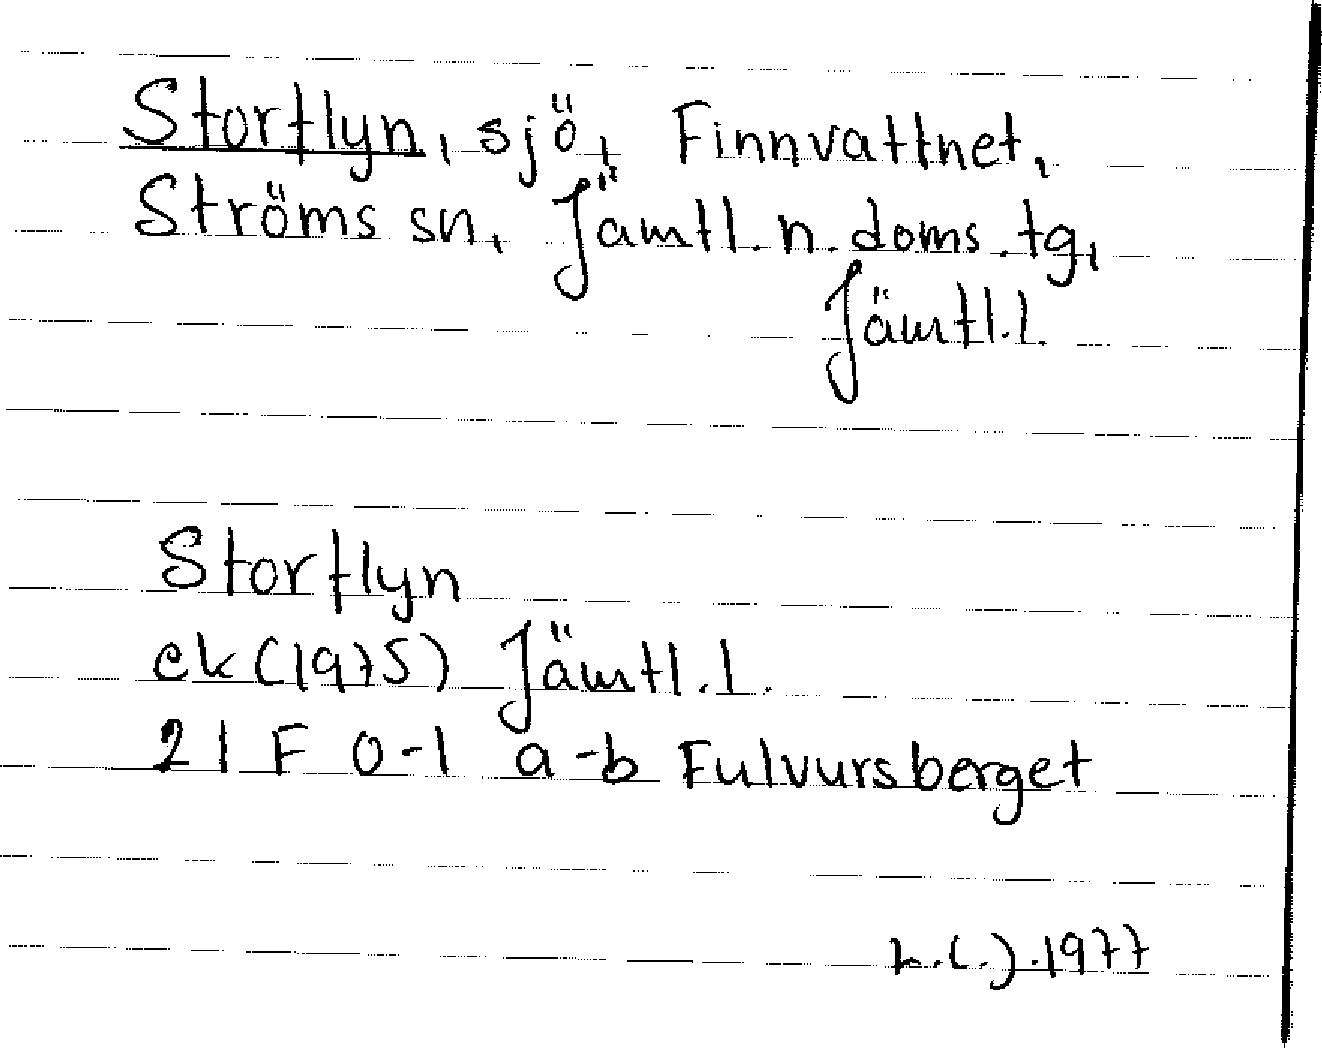 Storflyn, sjö, Finnvattnet,
Ströms sn, Jämtl. n. doms. tg,
Jämtl. l.
Storflyn
ek (1975) Jämtl. l.
21 F 0-1 a-b Fulvursberget
1977